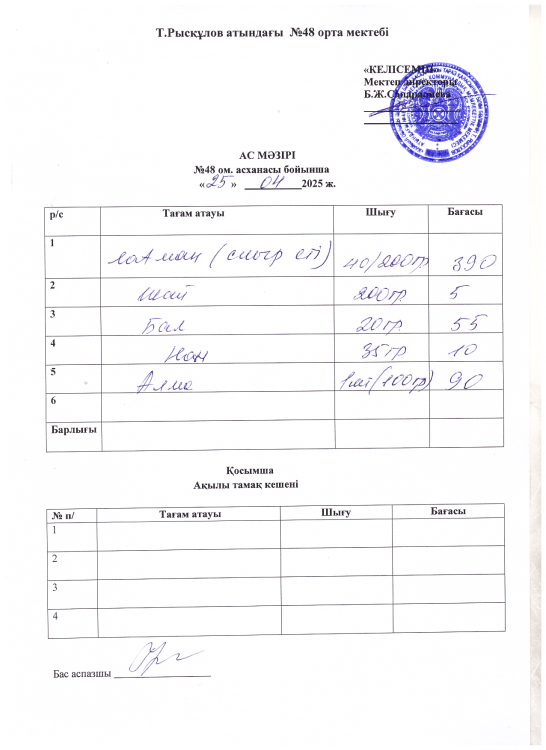 Т.Рысқұлов атындағы №48 орта мектебі
«КЕЛІСЕМІН»
Мектеп директоры
Б.Ж.Сапаралиева
АС МӘЗІРІ
№48 ом. асханасы бойынша
«25» 04 2025 ж.
р/с Тағам атауы Шығу Бағасы
1 лағман (сиыр еті) 40/200гр 390
2 Шай 200гр 5
3 Бал 20гр 55
4 Нан 35гр 10
5 Алма 1шт(100гр) 90
6
Барлығы
Қосымша
Ақылы тамақ кешені
№ п/ Тағам атауы Шығу Бағасы
1
2
3
4
Бас аспазшы